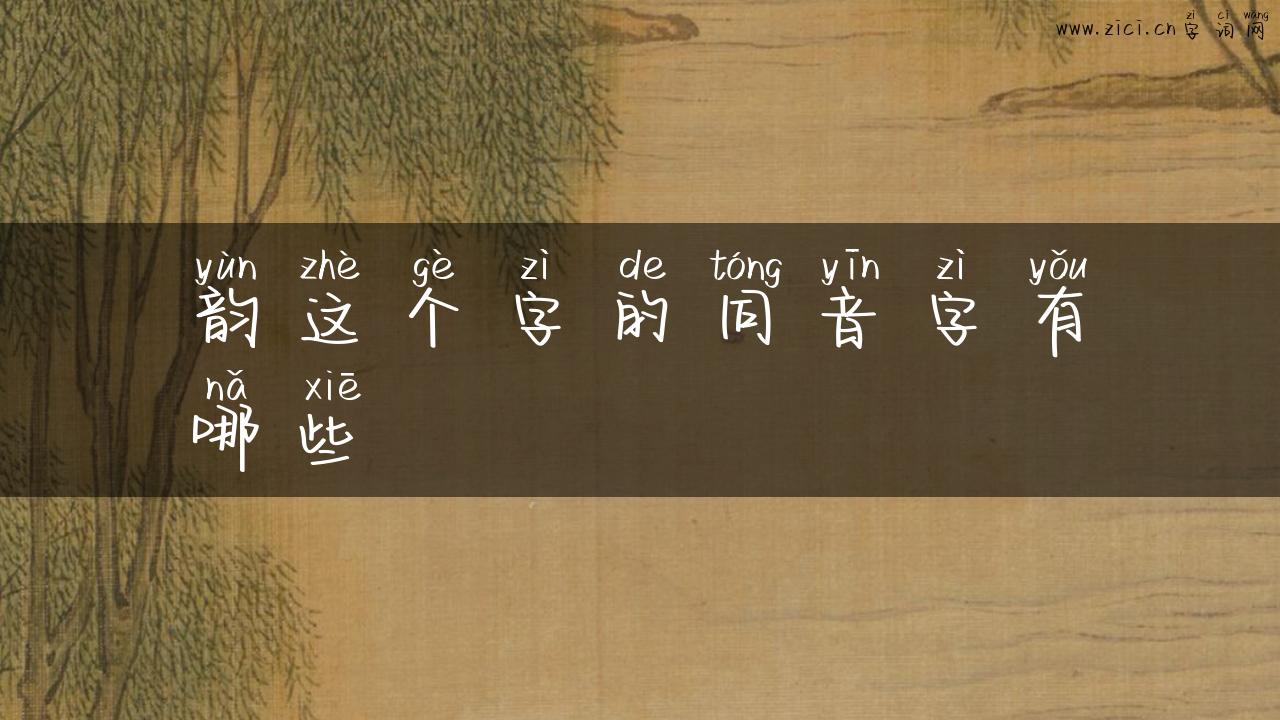 zì cí wǎng
www.zici.cn 字词网
yùn zhè gè zì de tóng yīn zì yǒu
韵这个字的同音字有
nǎ xiē
哪些